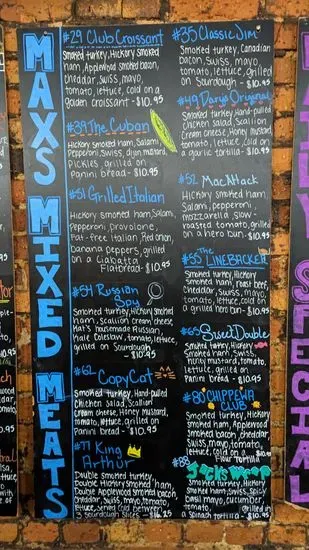 MAXS MIXED MEATS
#29 Club Croissant
Smoked turkey, Hickory smoked
ham, Applewood smoked bacon,
cheddar, swiss, mayo,
tomato, lettuce, cold on a
golden croissant - $10.95
#39 The Cuban
Hickory smoked ham, Salami,
Pepperoni, Swiss, dijon mustard,
Pickles grilled on
Panini bread - $10.95
#51 Grilled Italian
Hickory smoked ham, Salami,
Pepperoni, provolone,
Fat-free Italian, Red onion,
banana peppers, grilled
on a Ciabatta
Flatbread - $10.95
#54 Russian
Spy
Smoked turkey, Hickory smoked
ham, scallion cream cheese,
Kat's homemade Russian,
Kale Coleslaw, tomato, lettuce,
grilled on Sourdough
- $10.95
#62 CopyCat
Smoked turkey, Hand-pulled
Chicken salad, Scallion
Cream cheese, Honey mustard,
tomato, lettuce, grilled on
Panini bread - $10.95
#77 King
Arthur
Double smoked turkey,
Double Hickory smoked ham,
Double Applewood smoked bacon,
cheddar, Swiss, mayo, tomato,
lettuce, served cold between
3 sourdough slices
#35 Classic Jim
Smoked turkey, Canadian
bacon, Swiss, mayo,
tomato, lettuce, grilled
on Sourdough - $10.95
#49 Dary's Original
Smoked turkey, Hand-pulled
chicken salad, scallion
cream cheese, Honey mustard,
tomato, lettuce, cold on
a garlic tortilla - $10.95
#52 Mac Attack
Hickory smoked ham,
Salami, pepperoni,
mozzarella slow-
roasted tomato, grilled
on a hero bun - $10.95
#55 The
LINEBACKER
Smoked turkey, Hickory
smoked ham, roast beef,
Cheddar, swiss, mayo,
tomato, lettuce, cold on a
grilled hero bun - $10.95
Sweet Double
Smoked turkey, Hickory
Smoked ham, Swiss,
honey mustard, tomato,
lettuce, grilled on
Panini bread - $10.95
#80 CHIPPEWA
CLUB
Smoked turkey, Hickory
Smoked ham, Applewood
smoked bacon, cheddar,
swiss, mayo, tomato,
lettuce, cold on a
Flour tortilla
Smoked turkey, Hickory
Smoked ham, Swiss, Spicy
Basil mayo, cucumber,
tomato, grilled in
a spinach tortilla - $10.95
SPECIAL